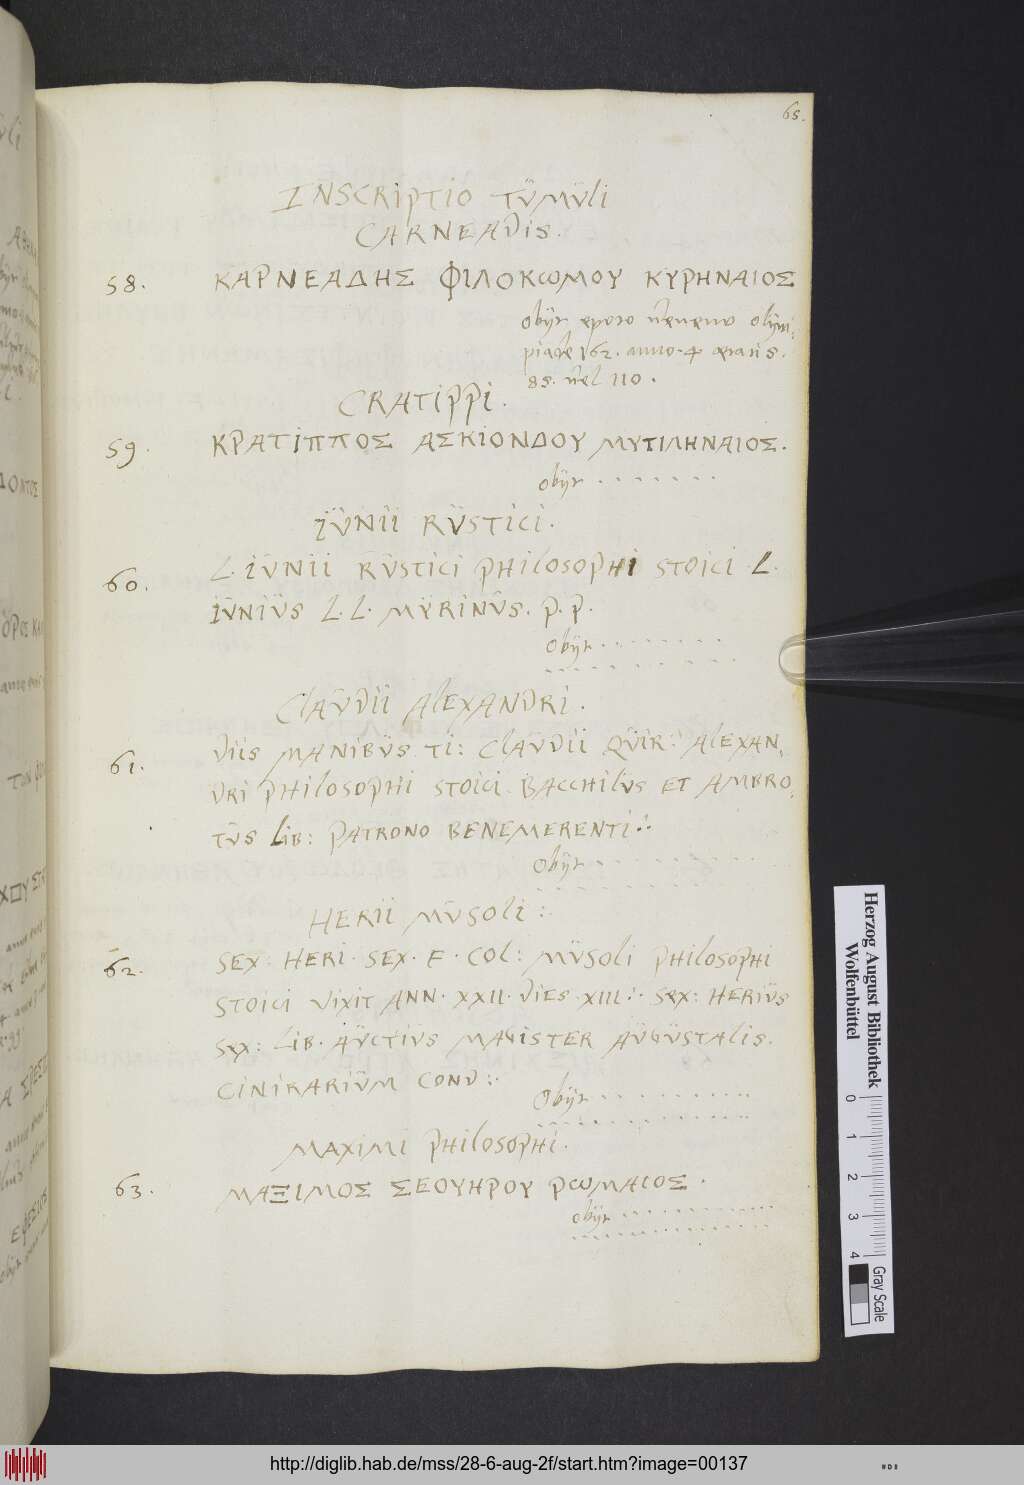 65.
INSCRIPTIO TÜMÜLI
CARNEADIS.
58. ΚΑΡΝΕΑΔΗΣ ΦΙΛΟΚΩΜΟΥ ΚΥΡΗΝΑΙΟΣ
obijt epoto veneno olym-
piade 162. anno. 4 ætatis.
85. vel 110.
CRATIPPI.
59. ΚΡΑΤΙΠΠΟΣ ΑΣΚΙΟΝΔΟΥ ΜΥΤΙΛΗΝΑΙΟΣ.
obijt . . . . . . .
IÜNII RÜSTICI.
60. L. IÜNII RÜSTICI PHILOSOPHI STOICI L.
IÜNIÜS L. L. MYRINÜS. P. P.
obijt . . . . . . .
CLAÜDII ALEXANDRI.
61. DIIS MANIBÜS TI: CLAÜDII QÜIR: ALEXAN,
DRI PHILOSOPHI STOICI BACCHILVS ET AMBRO,
TÜS LIB: PATRONO BENEMERENTI:.
Obijt . . . . . . .
HERII MÜSOLI:.
62. SEX: HERI. SEX. F. COL: MÜSOLI PHILOSOPHI
STOICI VIXIT ANN. XXII. DIES. XIII:. SEX: HERIÜS
SEX: LIB. AÜCTIÜS MAGISTER AÜGÜSTALIS.
CINIRARIÜM COND:.
Obijt . . . . . . .
MAXIMI PHILOSOPHI.
63. ΜΑΞΙΜΟΣ ΣΕΟΥΗΡΟΥ ΡΩΜΑΙΟΣ.
obijt . . . . . . .
Herzog August Bibliothek
Wolfenbüttel
0 1 2 3 4
Gray Scale
http://diglib.hab.de/mss/28-6-aug-2f/start.htm?image=00137